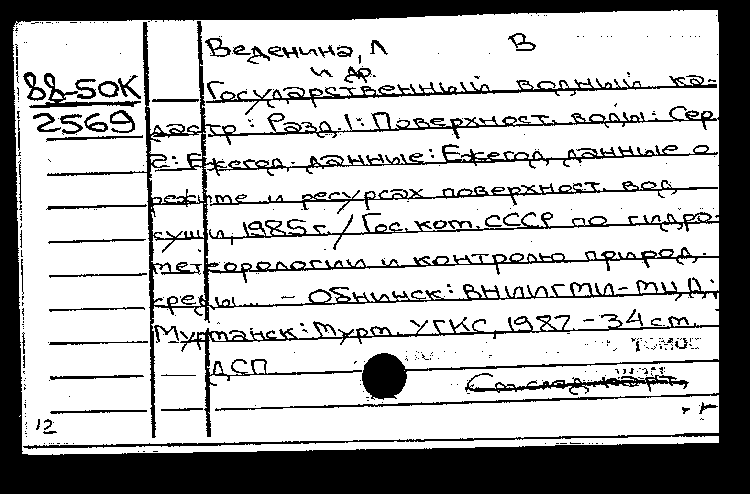 Веденина, Л В
и др.
88-50К Государственный водный ка-
2569 дастр: Разд. 1: Поверхност. воды: Сер
2: Ежегод. данные: Ежегод. данные о
режиме и ресурсах поверхност. вод
суши, 1985 г. / Гос. ком. СССР по гидро-
метеорологии и контролю природ.
среды... - Обнинск: ВНИИГМИ-МЦД;
Мурманск: Мурм. УГКС, 1987 - 34 см.
ТОМОВ
ДСП
См. след. карт.
12